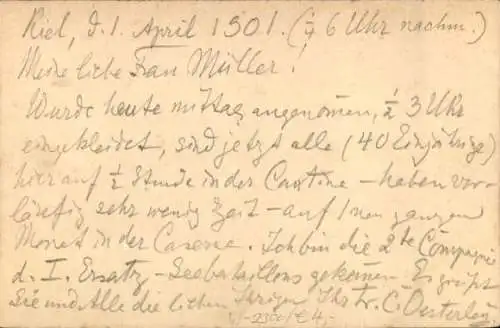 Kiel, d. 1. April 1901. (¼ 6 Uhr nachm.)
Meine liebe Frau Müller!
Wurde heute mittag angenommen, ½ 3 Uhr
eingekleidet, sind jetzt alle (40 Einjährige)
hier auf ½ Stunde in der Cantine – haben vor-
läufig sehr wenig Zeit – auf 1 nen ganzen
Monat in der Caserne. Ich bin die 2te Compagnie
d. I. Ersatz-Seebataillons gekommen. Es grüßt
Sie und Alle die lieben Ihrigen Ihr tr. C. Oesterley